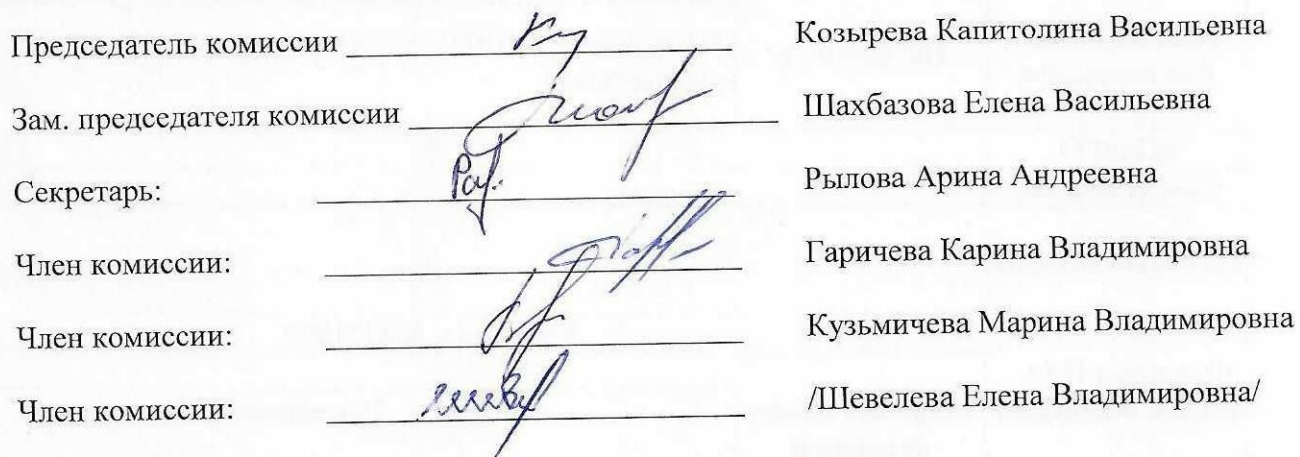 Председатель комиссии Козырева Капитолина Васильевна
Зам. председателя комиссии Шахбазова Елена Васильевна
Секретарь: Рылова Арина Андреевна
Член комиссии: Гаричева Карина Владимировна
Член комиссии: Кузьмичева Марина Владимировна
Член комиссии: /Шевелева Елена Владимировна/